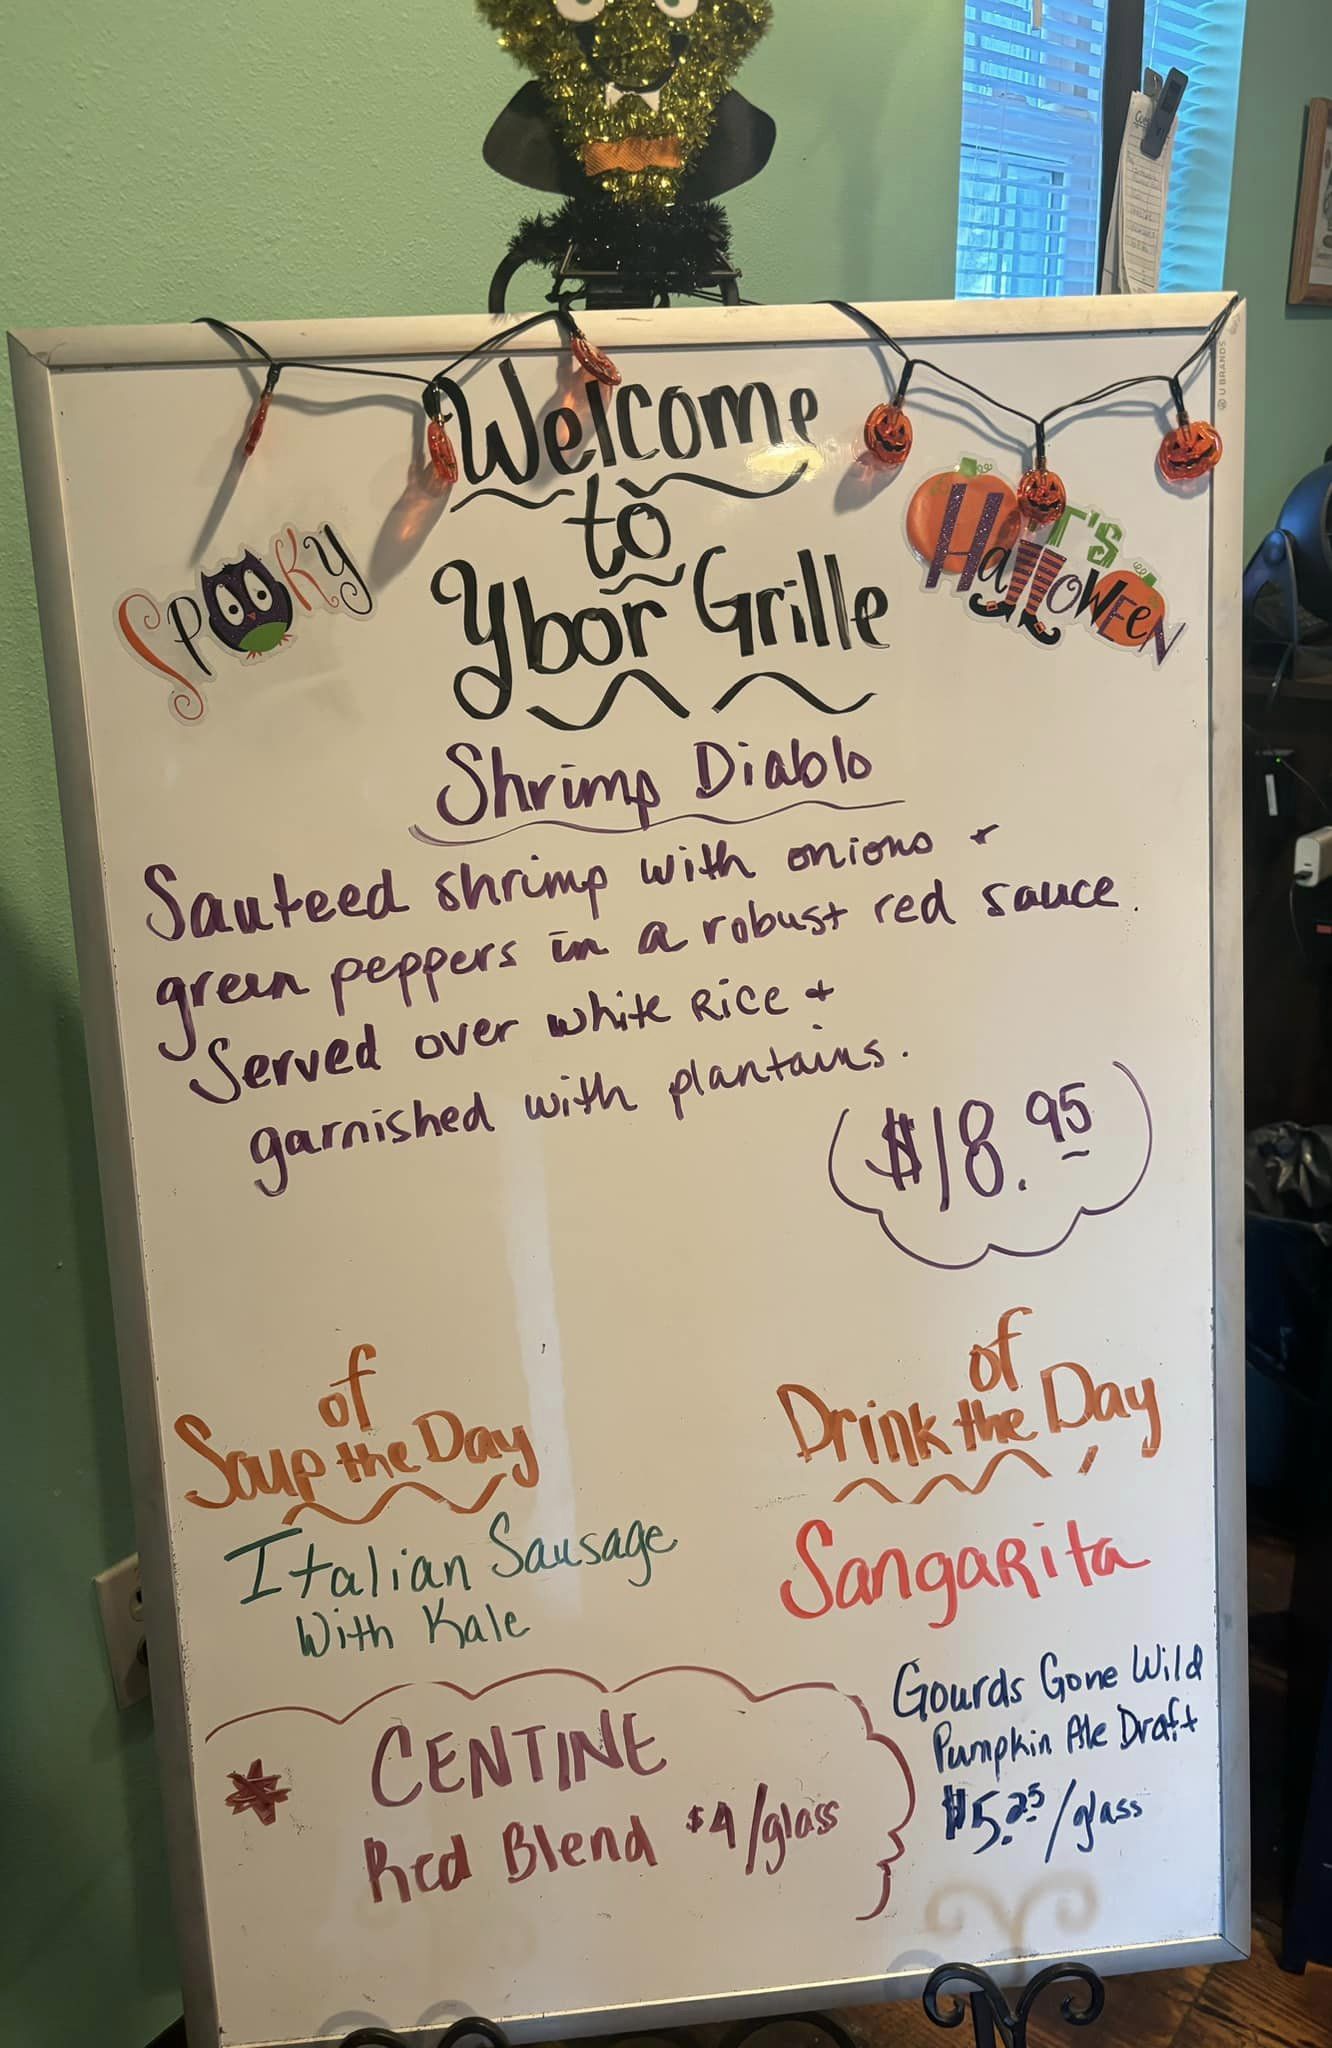 U BRANDS
Welcome
to
Ybor Grille
SPOOKY
IT'S
HALLOWEEN
Shrimp Diablo
Sauteed shrimp with onions +
green peppers in a robust red sauce.
Served over white Rice +
garnished with plantains.
$18.95
Soup of the Day
Italian Sausage
With Kale
Drink of the Day
Sangarita
Gourds Gone Wild
Pumpkin Ale Draft
$5.25/glass
* CENTINE
Red Blend $4/glass